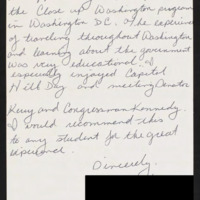 the Close up Washington program
in Washington D.C. The experience
of traveling throughout Washington
and learning about the government
was very educational. I
especially enjoyed Capitol
Hill Day and meeting Senator
Kerry and Congressman Kennedy.
I would recommend this
to any student for the great
experience.
Sincerely,